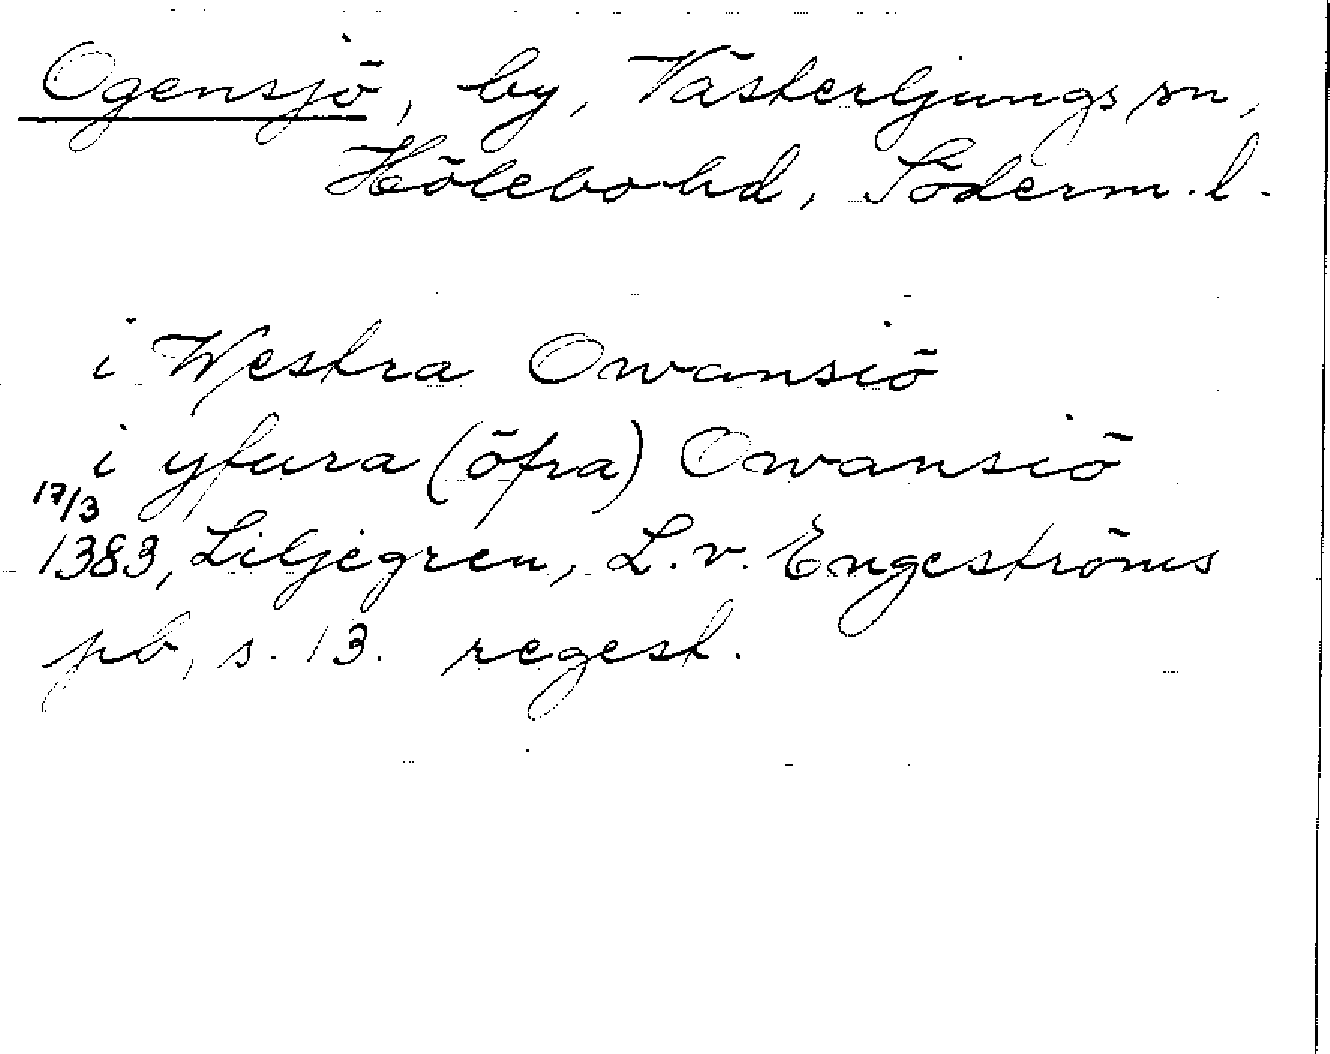 Ogensjö, by, Västerljungs sn,
Hölebo hd, Söderm. l.
i Westra Owansiö
i yfura (öfra) Owansiö
17/3
1383, Liljegren, L. v. Engeströms
pb, s. 13. regest.